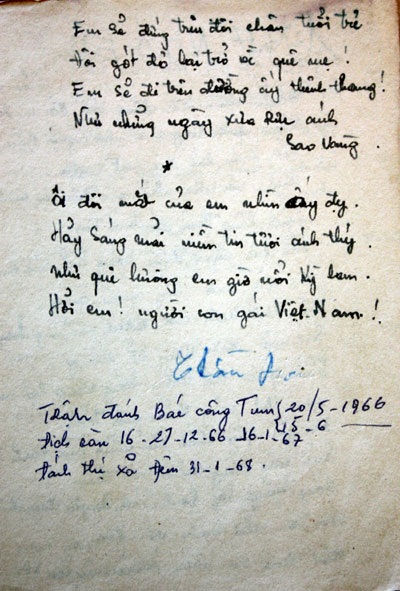 Em sẽ đứng trên đôi chân tuổi trẻ
Đôi gót đỏ lại trở về quê mẹ!
Em sẽ đi trên đường ấy thênh thang!
Như những ngày xưa rực ánh
Sao Vàng.
*
Ôi đôi mắt của em nhìn đấy
Hãy sáng mãi niềm tin tươi ánh thép.
Như quê hương em giờ nổi
Hỡi em! người con gái Việt-Nam!
Trận đánh Bắc Công Tum 20/5-1966
25-6
Địch càn 16-27-12-66 16-1-67
Đánh thị xã đêm 31-1-68.